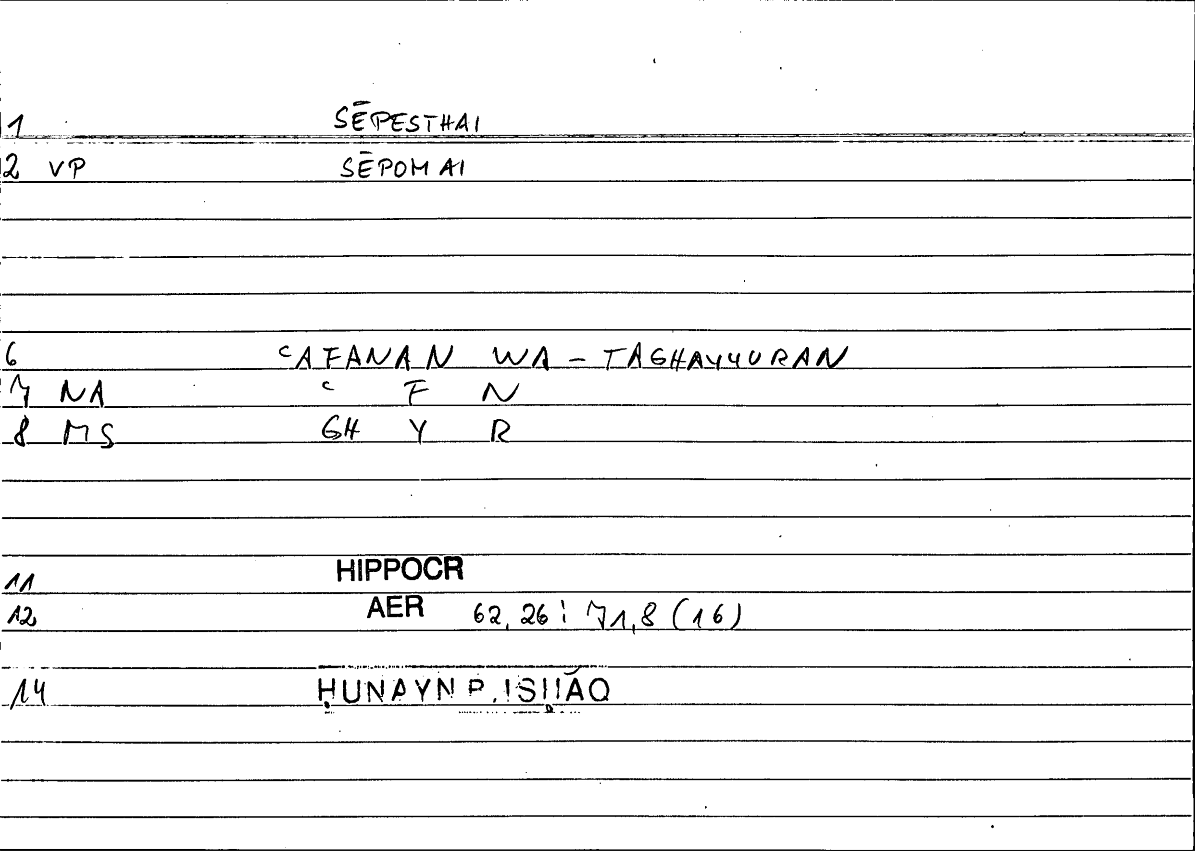 1 SĒPESTHAI
2 VP SĒPOMAI
6 ʿAFANAN WA-TAGHAYYURAN
7 NA ʿ F N
8 MS GH Y R
11 HIPPOCR
12 AER 62, 26 : 71,8 (16)
14 ḤUNAYN P. ISḤĀQ